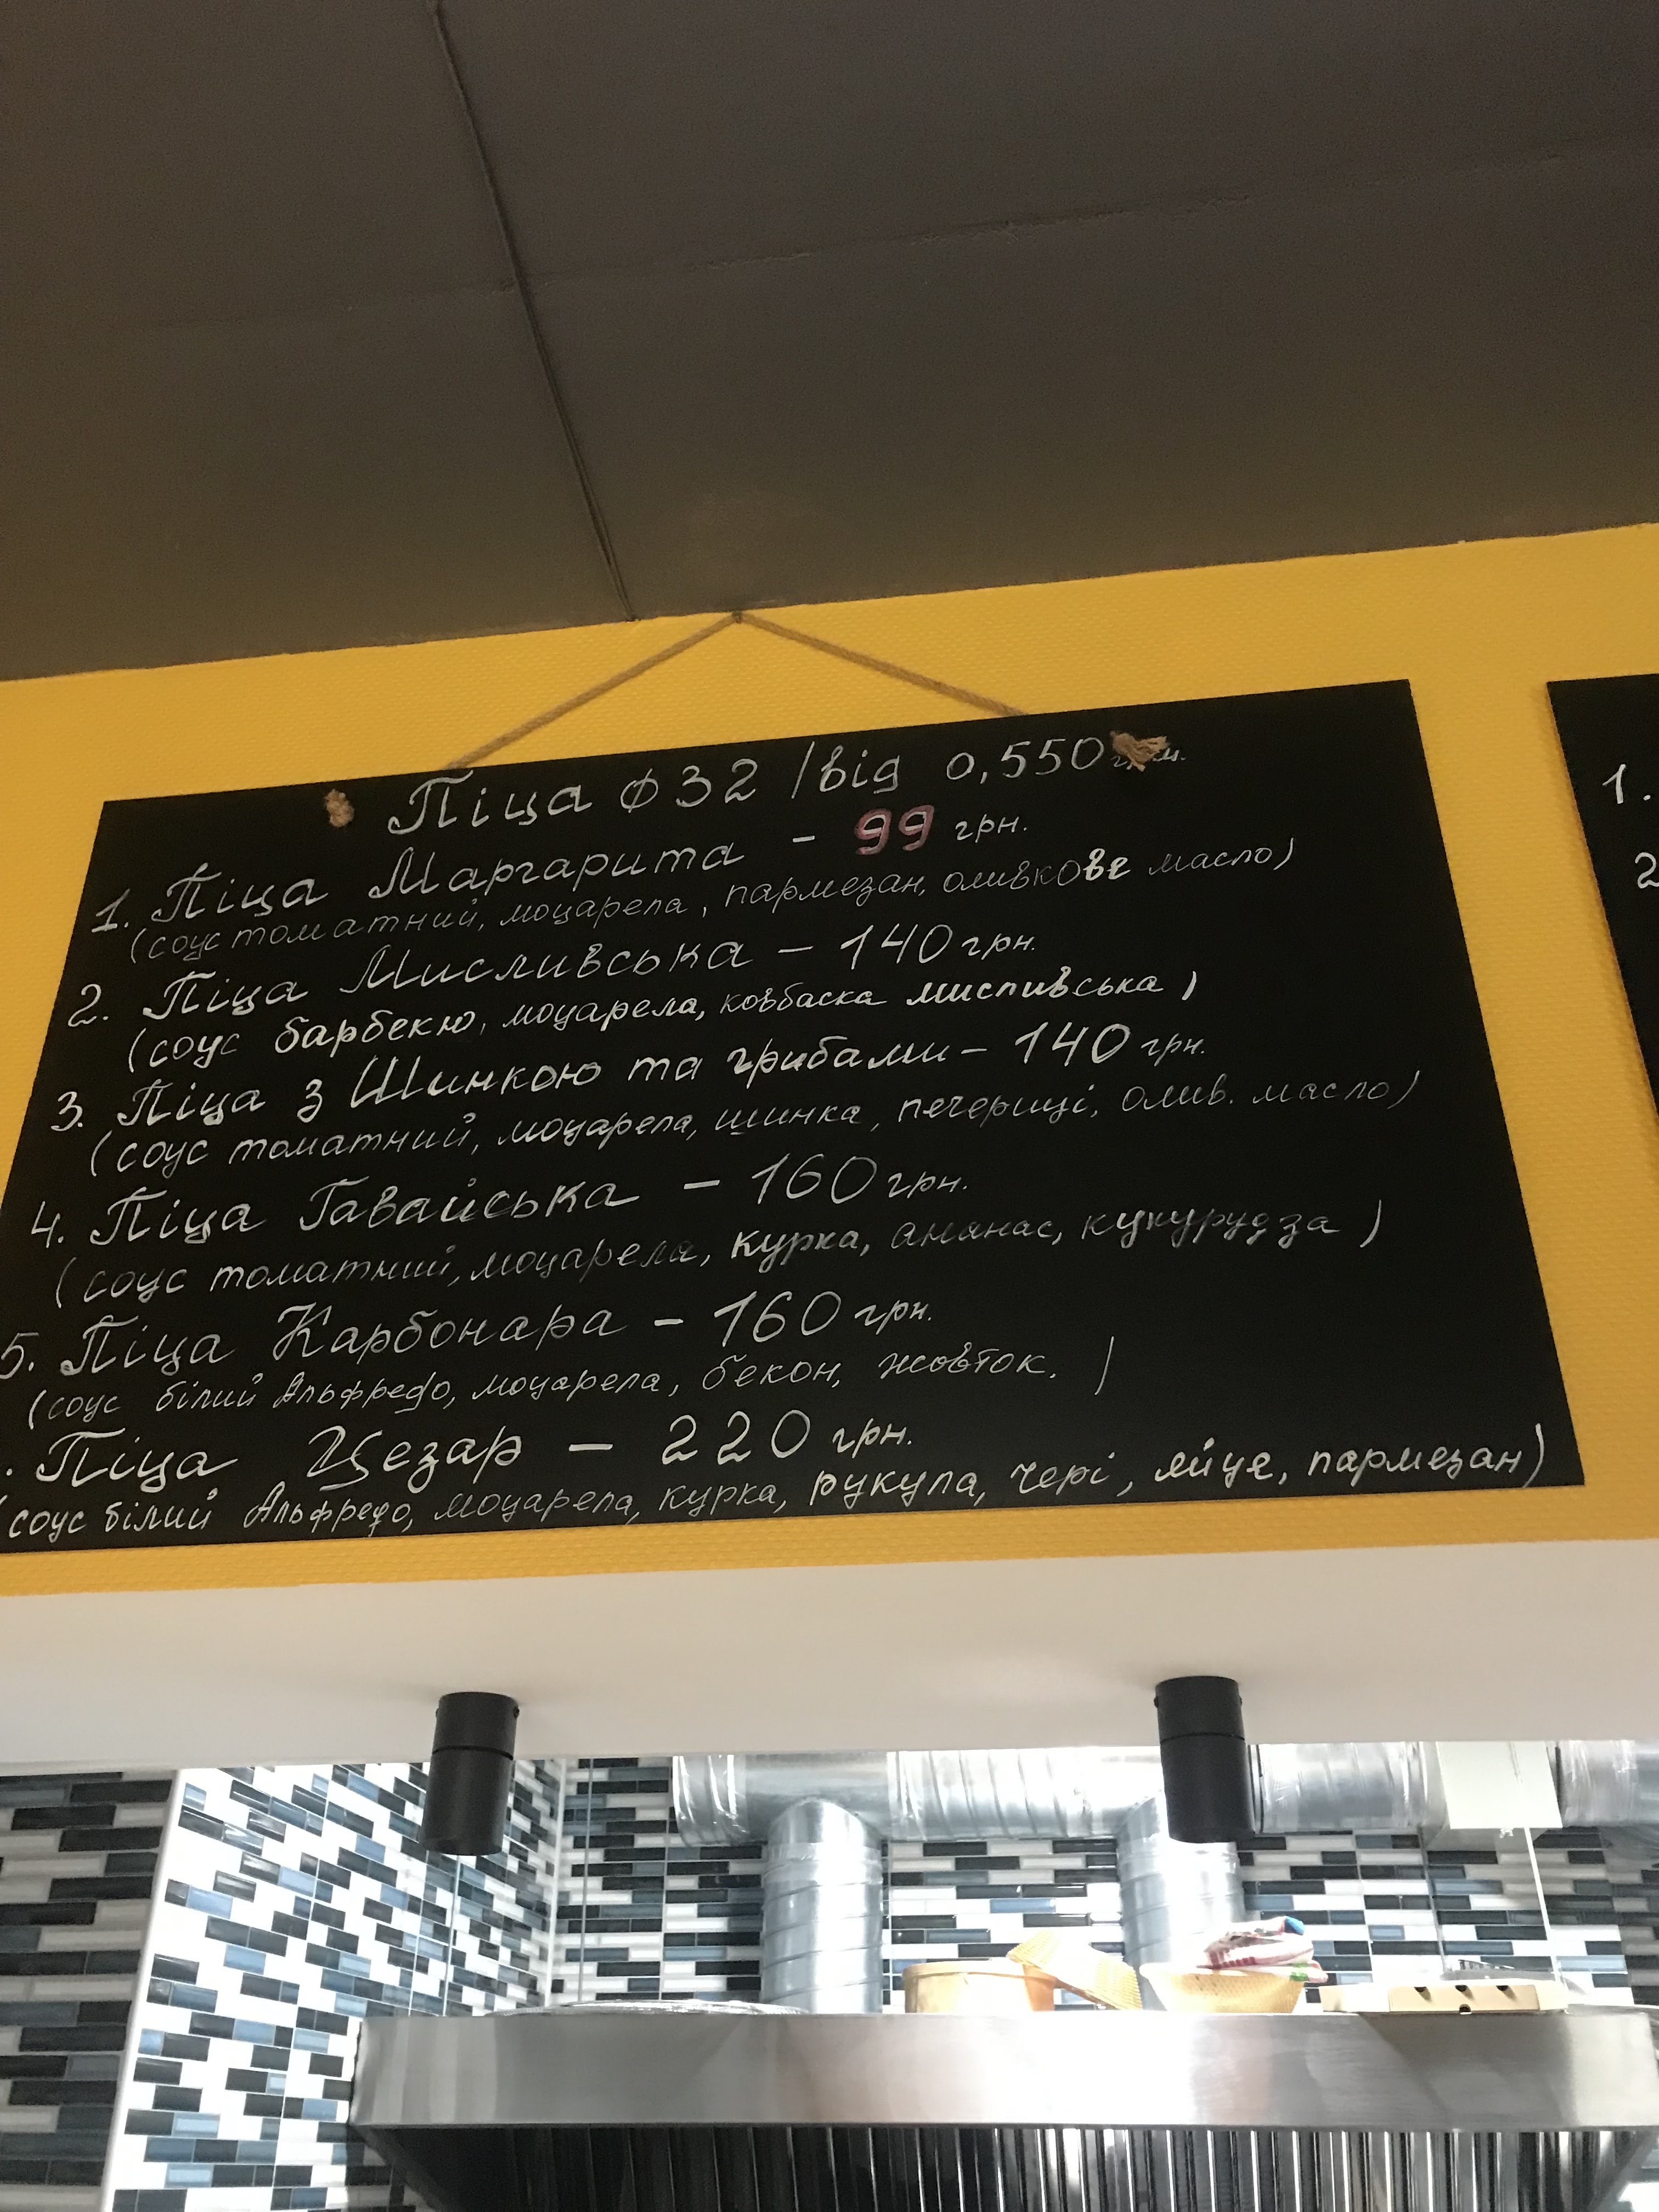 Піца ⌀32 /від 0,550
1. Піца Маргарита - 99 грн.
(соус томатний, моцарела, пармезан, оливкове масло)
2. Піца Мисливська - 140 грн.
(соус барбекю, моцарела, ковбаска мисливська)
3. Піца з Шинкою та грибами - 140 грн.
(соус томатний, моцарела, шинка, печериці, олив. масло)
4. Піца Гавайська - 160 грн.
(соус томатний, моцарела, курка, ананас, кукурудза)
5. Піца Карбонара - 160 грн.
(соус білий Альфредо, моцарела, бекон, жовток.)
. Піца Цезар - 220 грн.
(соус білий Альфредо, моцарела, курка, рукула, чері, яйце, пармезан)
1.
2